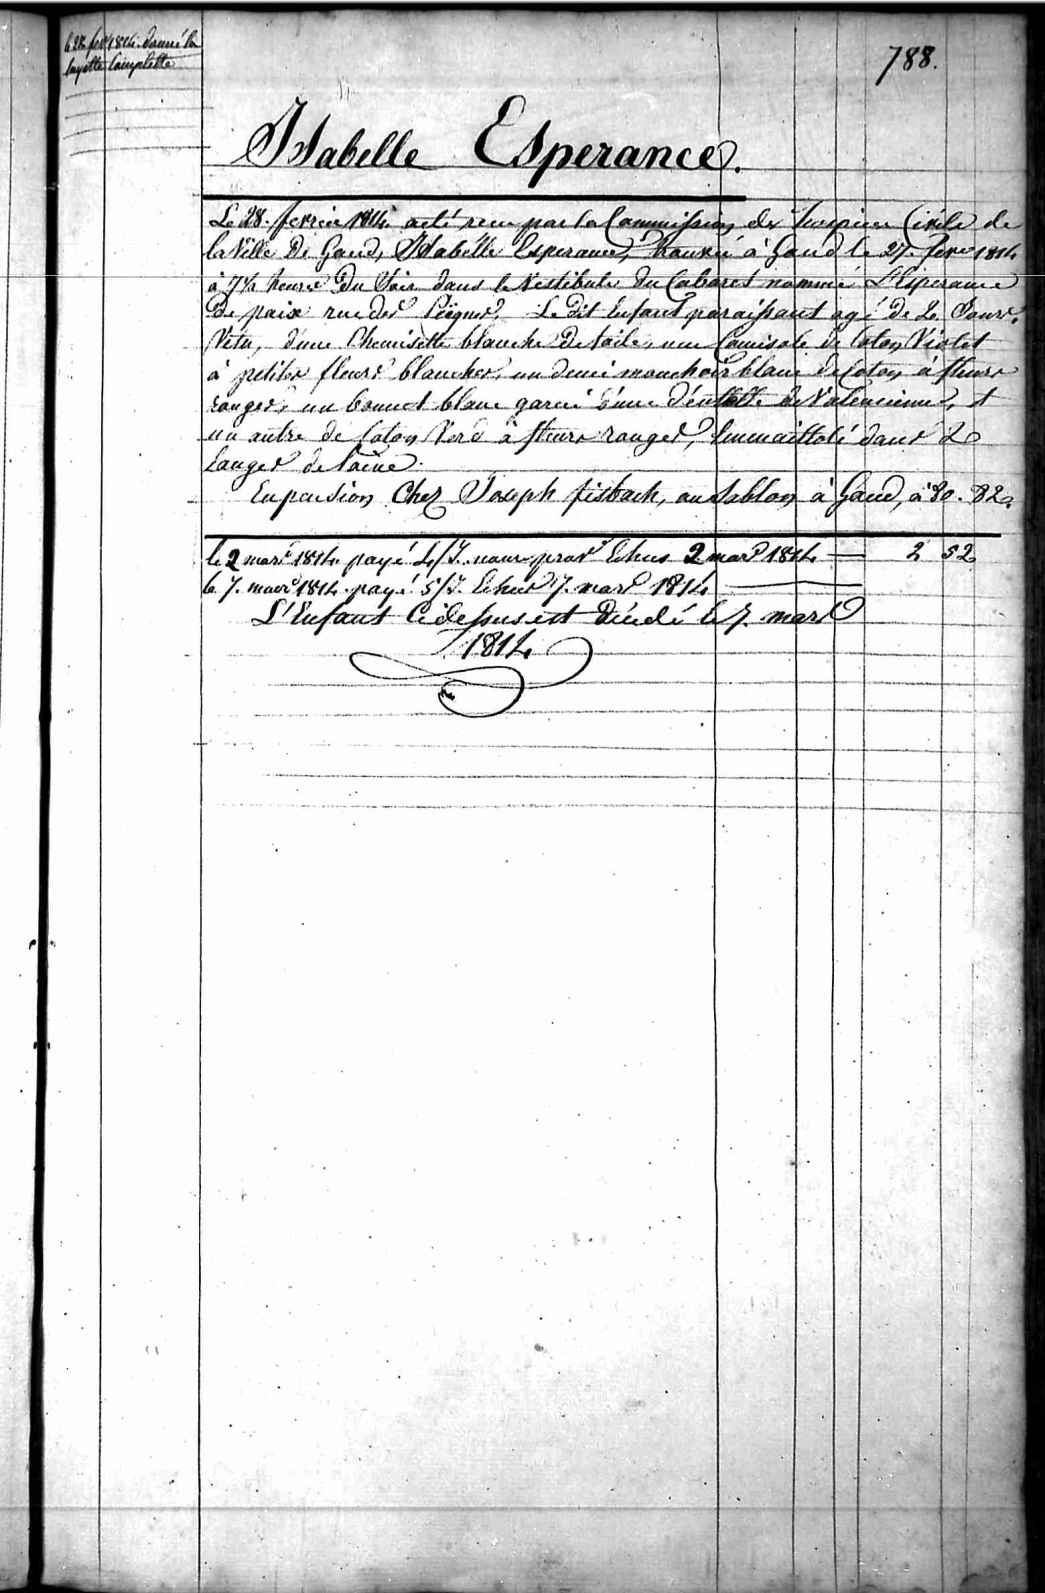 le 28 fevr 1814. donné la
layette Complette
788.
Isabelle Esperance.
Le 28. fevrier 1814. a eté recu par la Commission des hospices Civils de
la Ville De Gand, Isabelle Esperance, trouvée à Gand le 27. fevr 1814
à 7½ heures Du Soir dans le Vestibule Du Cabaret nommé L'Esperance
De paix rue des Peignes. Le dit Enfant paraissant agé de 2. Jours.
Vetu, d'une Chemisette blanche De toile, une Camisole de Coton Violet
à petites fleurs blanches, un demi mouchoir blanc de Coton à fleurs
rouges, un bonnet blanc garni d'une dentelle de Valencienne, et
un autre de Coton Verd à fleurs rouges, Emmaillotté dans 2
Langes de Laine.
En pension Chez Joseph fisbach, au Sablon à Gand, à 80.
le 2 mars 1814. payé 4/J. nour. prov.e Echus 2 mars 1814 — 2 52
le 7. mars 1814. payé 5/J. Echus 7. mars 1814 —
L'Enfant Cidessus est Décédé le 7. mars
1814